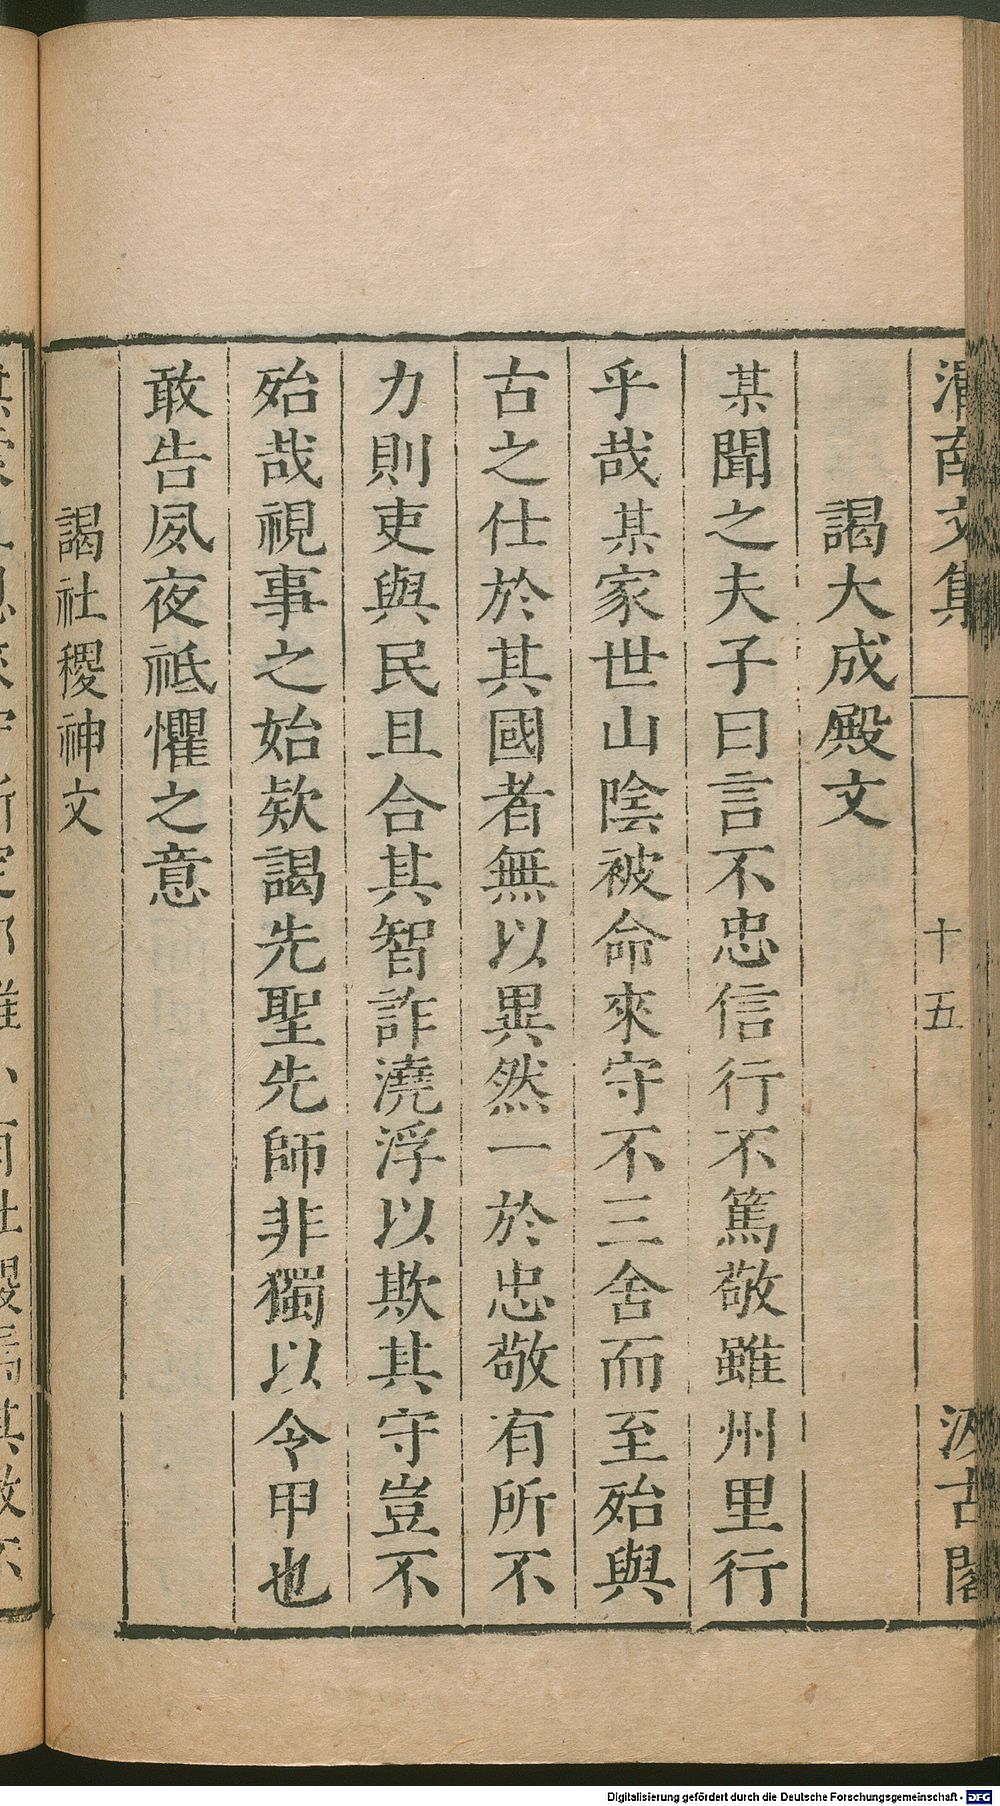 渭南文集 十五 汲古閣
謁大成殿文
某聞之夫子曰言不忠信行不篤敬雖州里行
乎哉某家世山陰被命來守不三舍而至殆與
古之仕於其國者無以異然一於忠敬有所不
力則吏與民且合其智詐澆浮以欺其守豈不
殆哉視事之始欵謁先聖先師非獨以令甲也
敢告夙夜祗懼之意
謁社稷神文
Digitalisierung gefördert durch die Deutsche Forschungsgemeinschaft - DFG